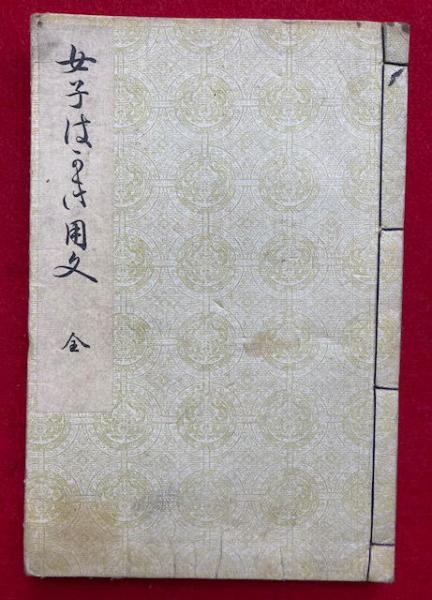 女子はかき用文
全